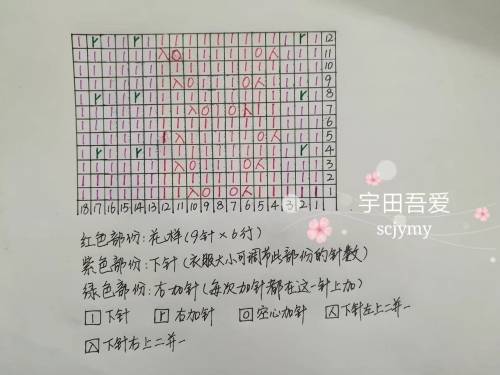 12
11
10
9
8
7
6
5
4
3
2
1
18 17 16 15 14 13 12 11 10 9 8 7 6 5 4 3 2 1
宇田吾爱
scjymy
红色部份:花样(9针×6行)
紫色部份:下针(衣服大小可调节此部份的针数)
绿色部份:右加针(每次加针都在这一针上加)
I 下针 右加针 O 空心加针 人 下针左上二并一
入 下针右上二并一